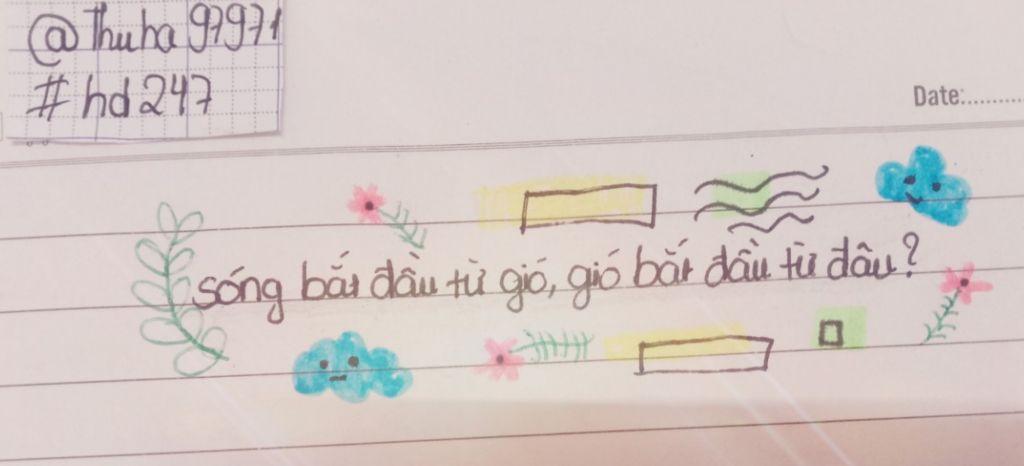 @Thuha97971
#hd247
Date:..........
sóng bắt đầu từ gió, gió bắt đầu từ đâu?